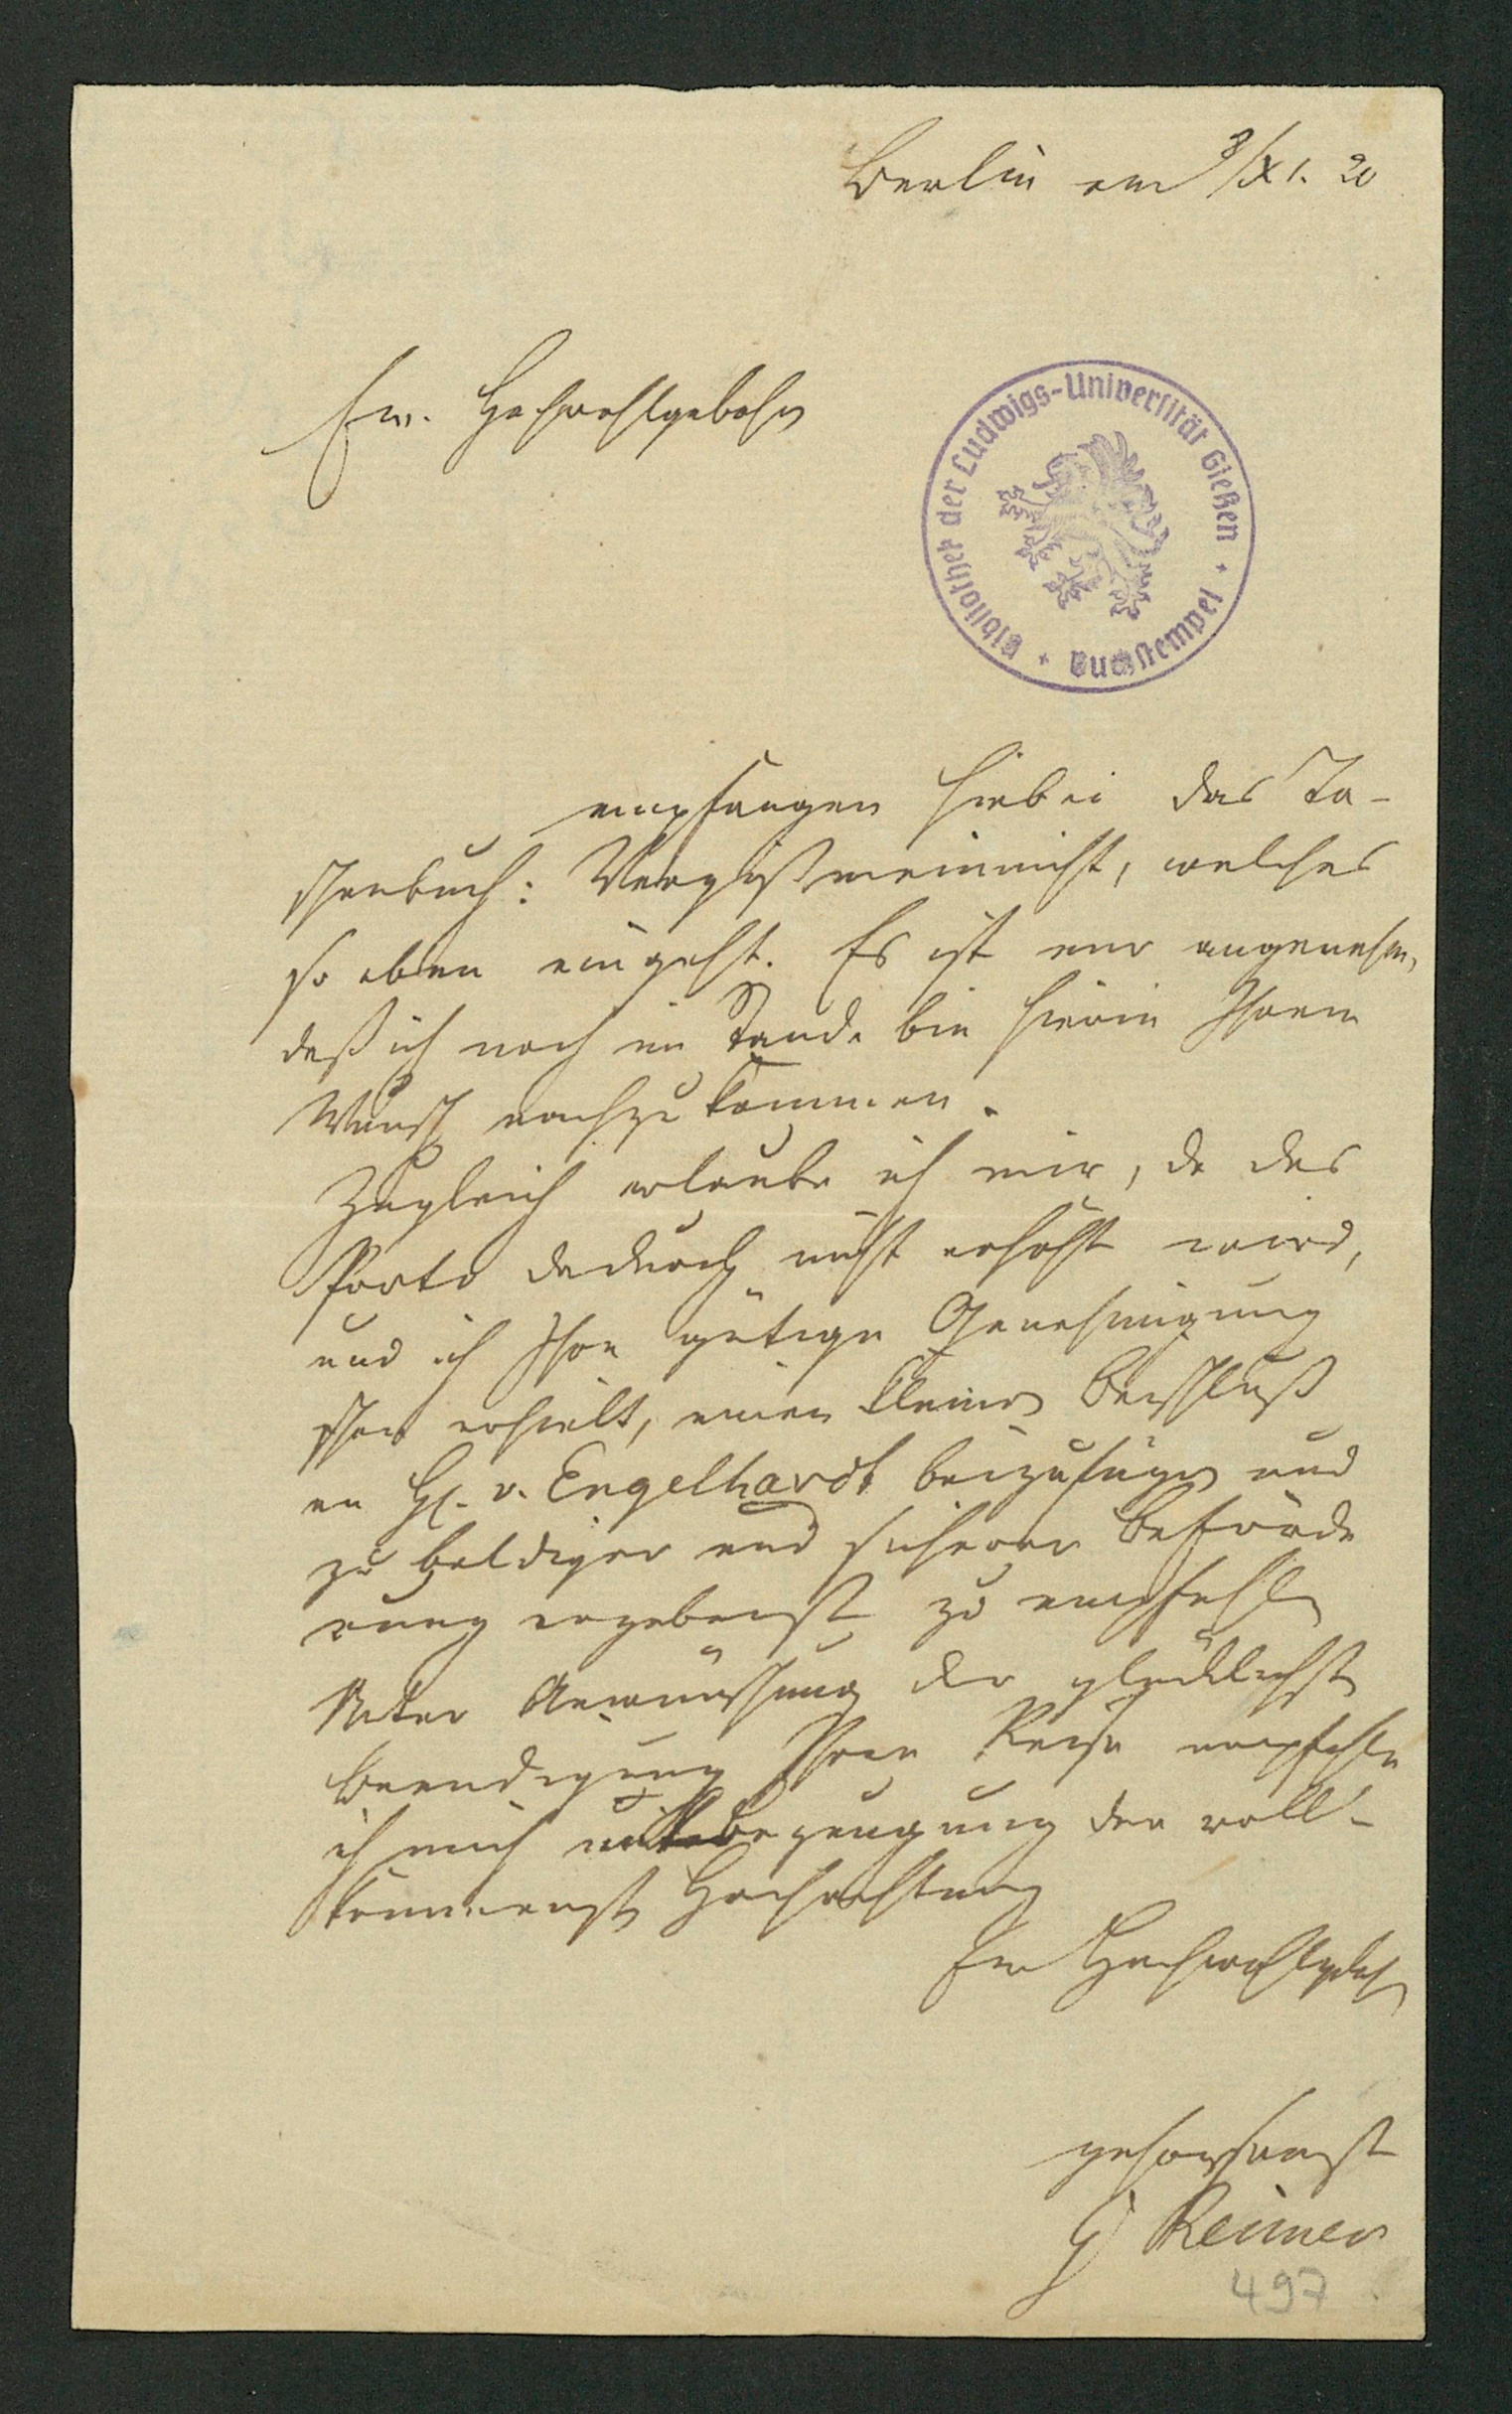 Berlin am 8/XI. 20
Ew. Hochwohlgebohrn
Bibliothek der Ludwigs-Universität Gießen
* Buchstempel *
empfangen hiebei das Ta-
schenbuch: Vergißmeinnicht, welches
so eben eingeht. Es ist mir angenehm,
daß ich noch im Stande bin hierin Ihrem
Wunsch nachzukommen.
Zugleich erlaube ich mir, da das
Porto dadurch nicht erhöht wird,
und ich Ihre gütige Genehmigung
schon erhielt, einen kleinen Beischluß
an H. v. Engelhardt beizufügen und
zu baldiger und sicherer Beförde
rung ergebenst zu empfehlen
Unter Anwünschung der glücklichsten
Beendigung Ihrer Reise empfehle
ich mich mit Bezeugung der voll-
kommensten Hochachtung
Ew Hochwohlgeb
gehorsamst
G Reimer
497